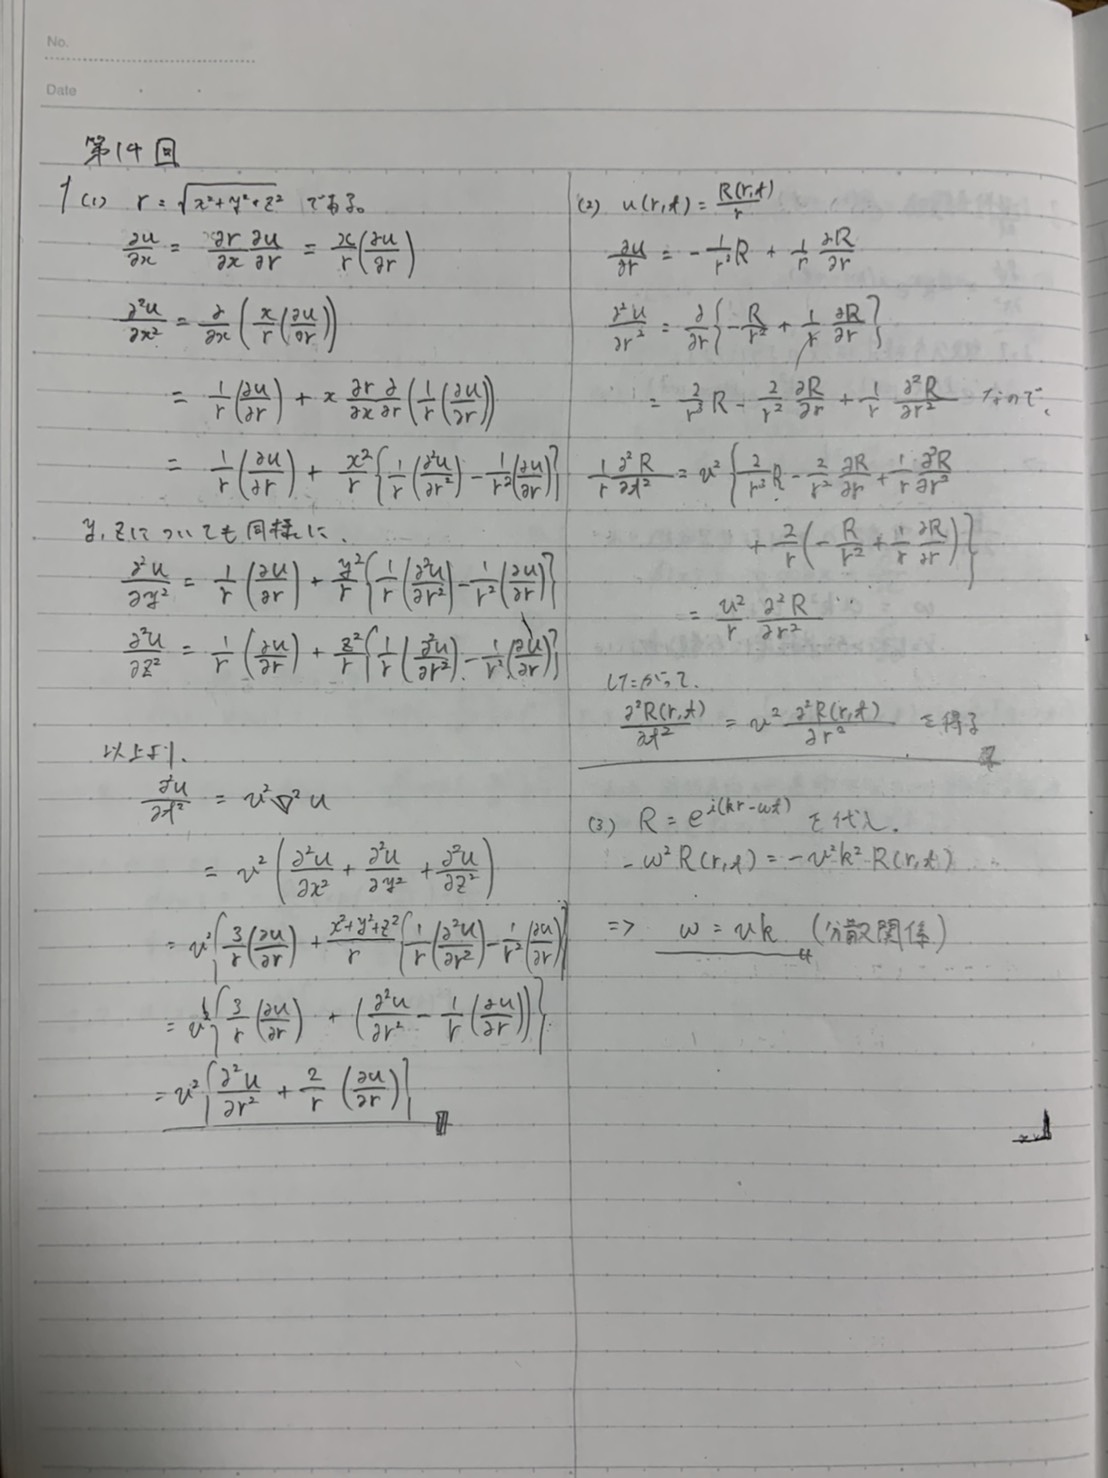 No.
Date
第14回
1 (1) r = √(x²+y²+z²) である。
∂u/∂x = ∂r/∂x ∂u/∂r = x/r (∂u/∂r)
∂²u/∂x² = ∂/∂x (x/r (∂u/∂r))
= 1/r (∂u/∂r) + x ∂r/∂x ∂/∂r (1/r (∂u/∂r))
= 1/r (∂u/∂r) + x²/r {1/r (∂²u/∂r²) - 1/r² (∂u/∂r)}
y, zについても同様に、
∂²u/∂y² = 1/r (∂u/∂r) + y²/r {1/r (∂²u/∂r²) - 1/r² (∂u/∂r)}
∂²u/∂z² = 1/r (∂u/∂r) + z²/r {1/r (∂²u/∂r²) - 1/r² (∂u/∂r)}
以上より、
∂²u/∂t² = v²∇²u
= v² (∂²u/∂x² + ∂²u/∂y² + ∂²u/∂z²)
= v² {3/r (∂u/∂r) + (x²+y²+z²)/r {1/r (∂²u/∂r²) - 1/r² (∂u/∂r)}
= v² {3/r (∂u/∂r) + (∂²u/∂r² - 1/r (∂u/∂r))}
= v² {∂²u/∂r² + 2/r (∂u/∂r)}
(2) u(r,t) = R(r,t)/r
∂u/∂r = -1/r² R + 1/r ∂R/∂r
∂²u/∂r² = ∂/∂r {-R/r² + 1/r ∂R/∂r}
= 2/r³ R - 2/r² ∂R/∂r + 1/r ∂²R/∂r² なので、
1/r ∂²R/∂t² = v² {2/r³ R - 2/r² ∂R/∂r + 1/r ∂²R/∂r²
+ 2/r (-R/r² + 1/r ∂R/∂r)}
= v²/r ∂²R/∂r²
したがって、
∂²R(r,t)/∂t² = v² ∂²R(r,t)/∂r² を得る
(3) R = e^{i(kr-ωt)} を代入.
-ω² R(r,t) = -v²k² R(r,t)
=> ω = vk (分散関係)